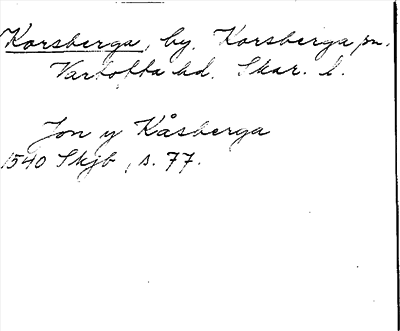 Korsberga, by. Korsberga sn.
Vartofta hd. Skar. l.
Jon y Kåsberga
1540 Skjb, s. 77.